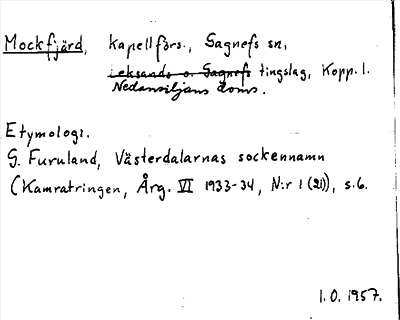 Mockfjärd, kapellförs., Gagnefs sn,
Leksands o. Gagnefs tingslag, Kopp. l.
Nedansiljans doms.
Etymologi.
G. Furuland, Västerdalarnas sockennamn
(Kamratringen, Årg. VI 1933-34, N:r 1 (21)), s. 6.
I.O. 1957.